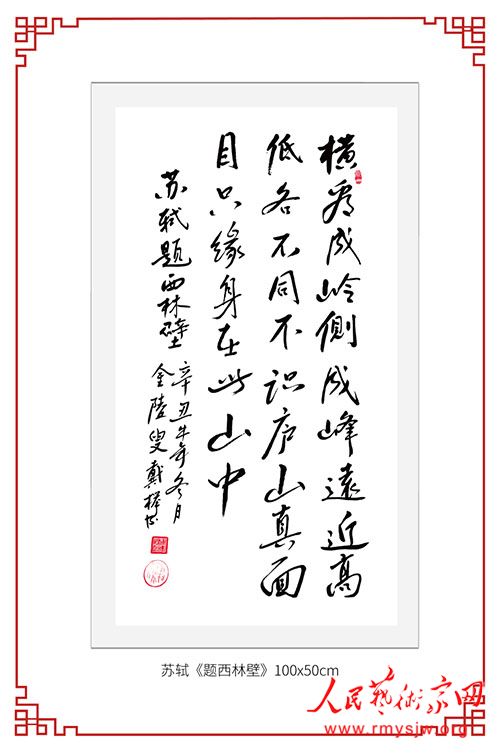 横看成岭侧成峰遠近高
低各不同不识庐山真面
目只缘身在此山中
苏轼题西林壁
辛丑牛年冬月
金陵叟戴
苏轼《题西林壁》100x50cm
人民藝術家网
www.rmysjw.org